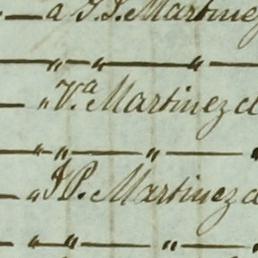 — a J. J. Martinez
— " — " — " —
— " V.ª Martinez d
— " — " — " — "
— " J P. Martinez d
— " — " — " — "